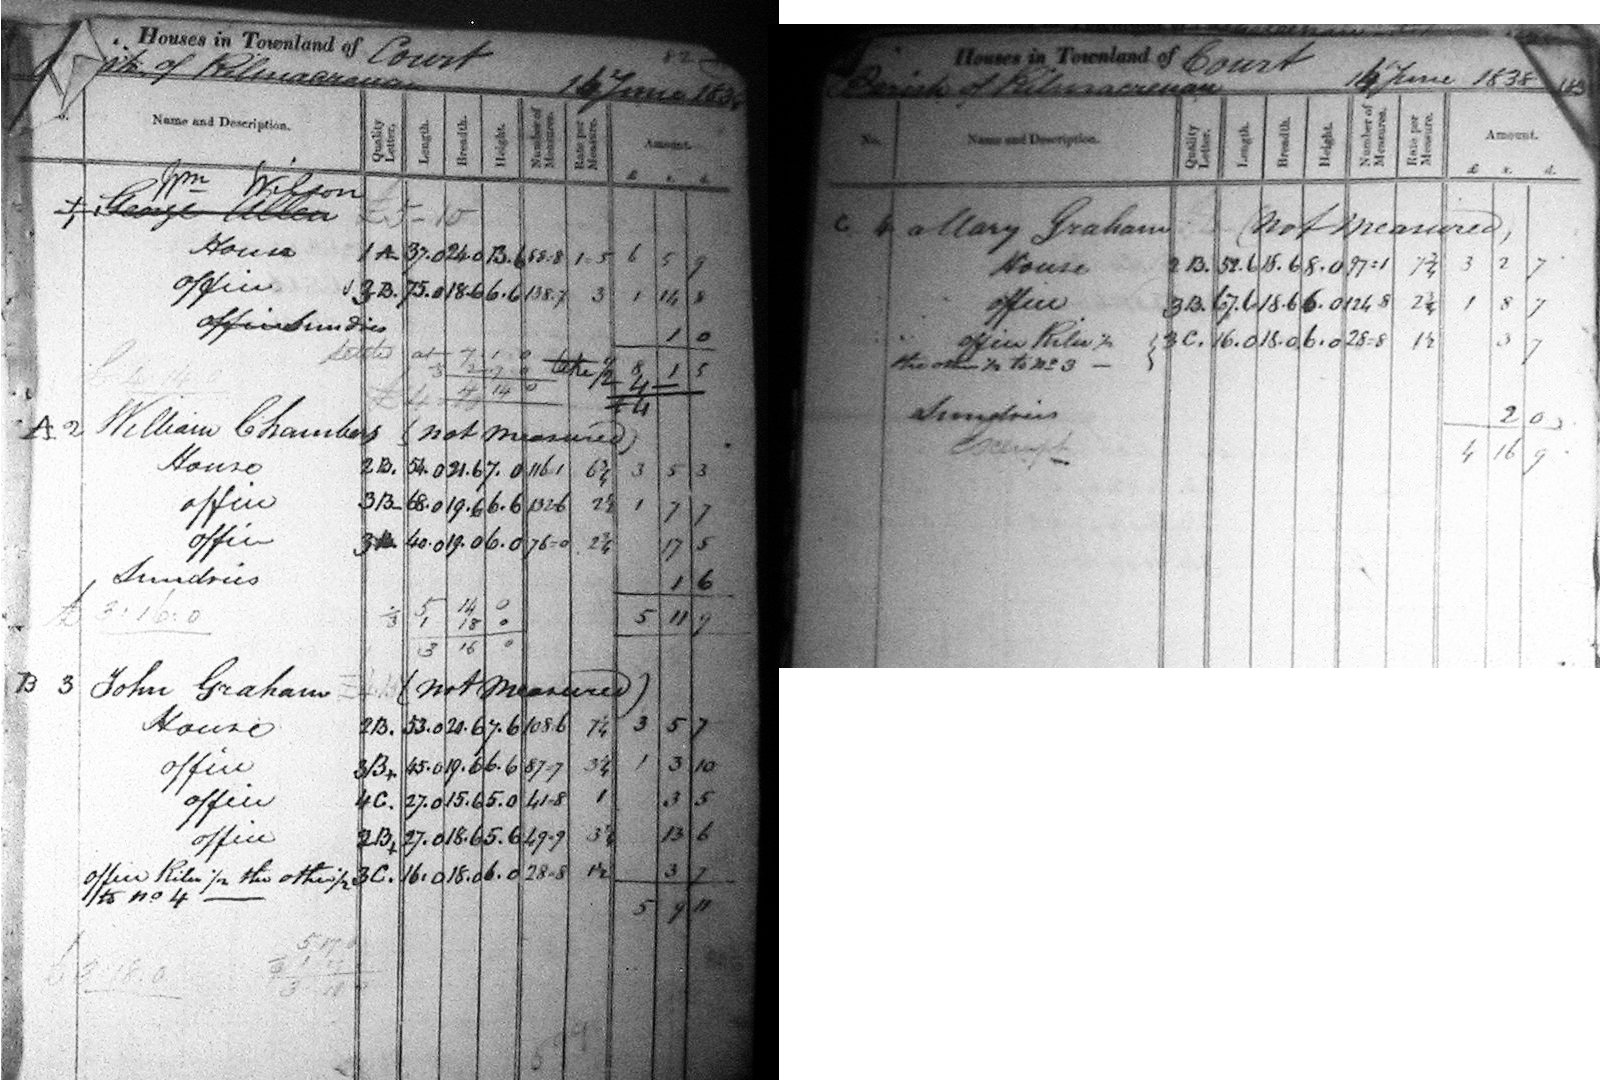 Houses in Townland of Court
of Kilmacrenan 14 June 1838
Name and Description. Quality Letter. Length. Breadth. Height. Number of Measures. Rate per Measure. Amount.
£ s. d.
Wm Wilson
1 George Allen £5-10
House 1 A- 37.0 24.0 13.6 1-5 6 5 9
office 3 B. 75.0 18.6 6.6 138.7 3 1 14 8
office Sundries 1 0
at 7 1 0 take 1/2 8 1 5
4 14 0 4
£4
A 2 William Chambers (not measured)
House 2 B. 54.0 21.6 7.0 116-1 6¾ 3 5 3
office 3 B- 68.0 19.6 6.6 132-6 2½ 1 7 7
office 3 40.0 19.0 6.0 76-0 2¾ 17 5
Sundries 1 6
£3.16.0 5 14 0 5 11 9
⅓ 1 18 0
3 16 0
B 3 John Graham (not measured)
House 2B. 53.0 20.6 7.6 108.6 7¼ 3 5 7
office 3B+ 45.0 19.6 6.6 87-7 3¼ 1 3 10
office 4C. 27.0 15.6 5.0 41-8 1 3 5
office 2B+ 27.0 18.6 5.6 49-9 3¼ 13 6
office Kiln ½ the other ½ 3C. 16.0 18.0 6.0 28-8 1½ 3 7
to no 4 — 5 9 11
Houses in Townland of Court
Parish of Kilmacrenan 14 June 1838
No. Name and Description. Quality Letter. Length. Breadth. Height. Number of Measures. Rate per Measure. Amount.
£ s. d.
C 4 Mary Graham (not measured)
House 2 B. 52.6 18.6 8.0 97-1 7¾ 3 2 7
office 3 B. 67.6 18.6 6.0 124 8 2¾ 1 8 7
office Kiln ½ 3 C. 16.0 18.0 6.0 28-8 1½ 3 7
the other ½ to no 3 —
Sundries 2 0
Exempt 4 16 9